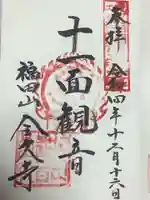 奉拝 令和四年十二月十六日
十一面観音
福田山 金久寺